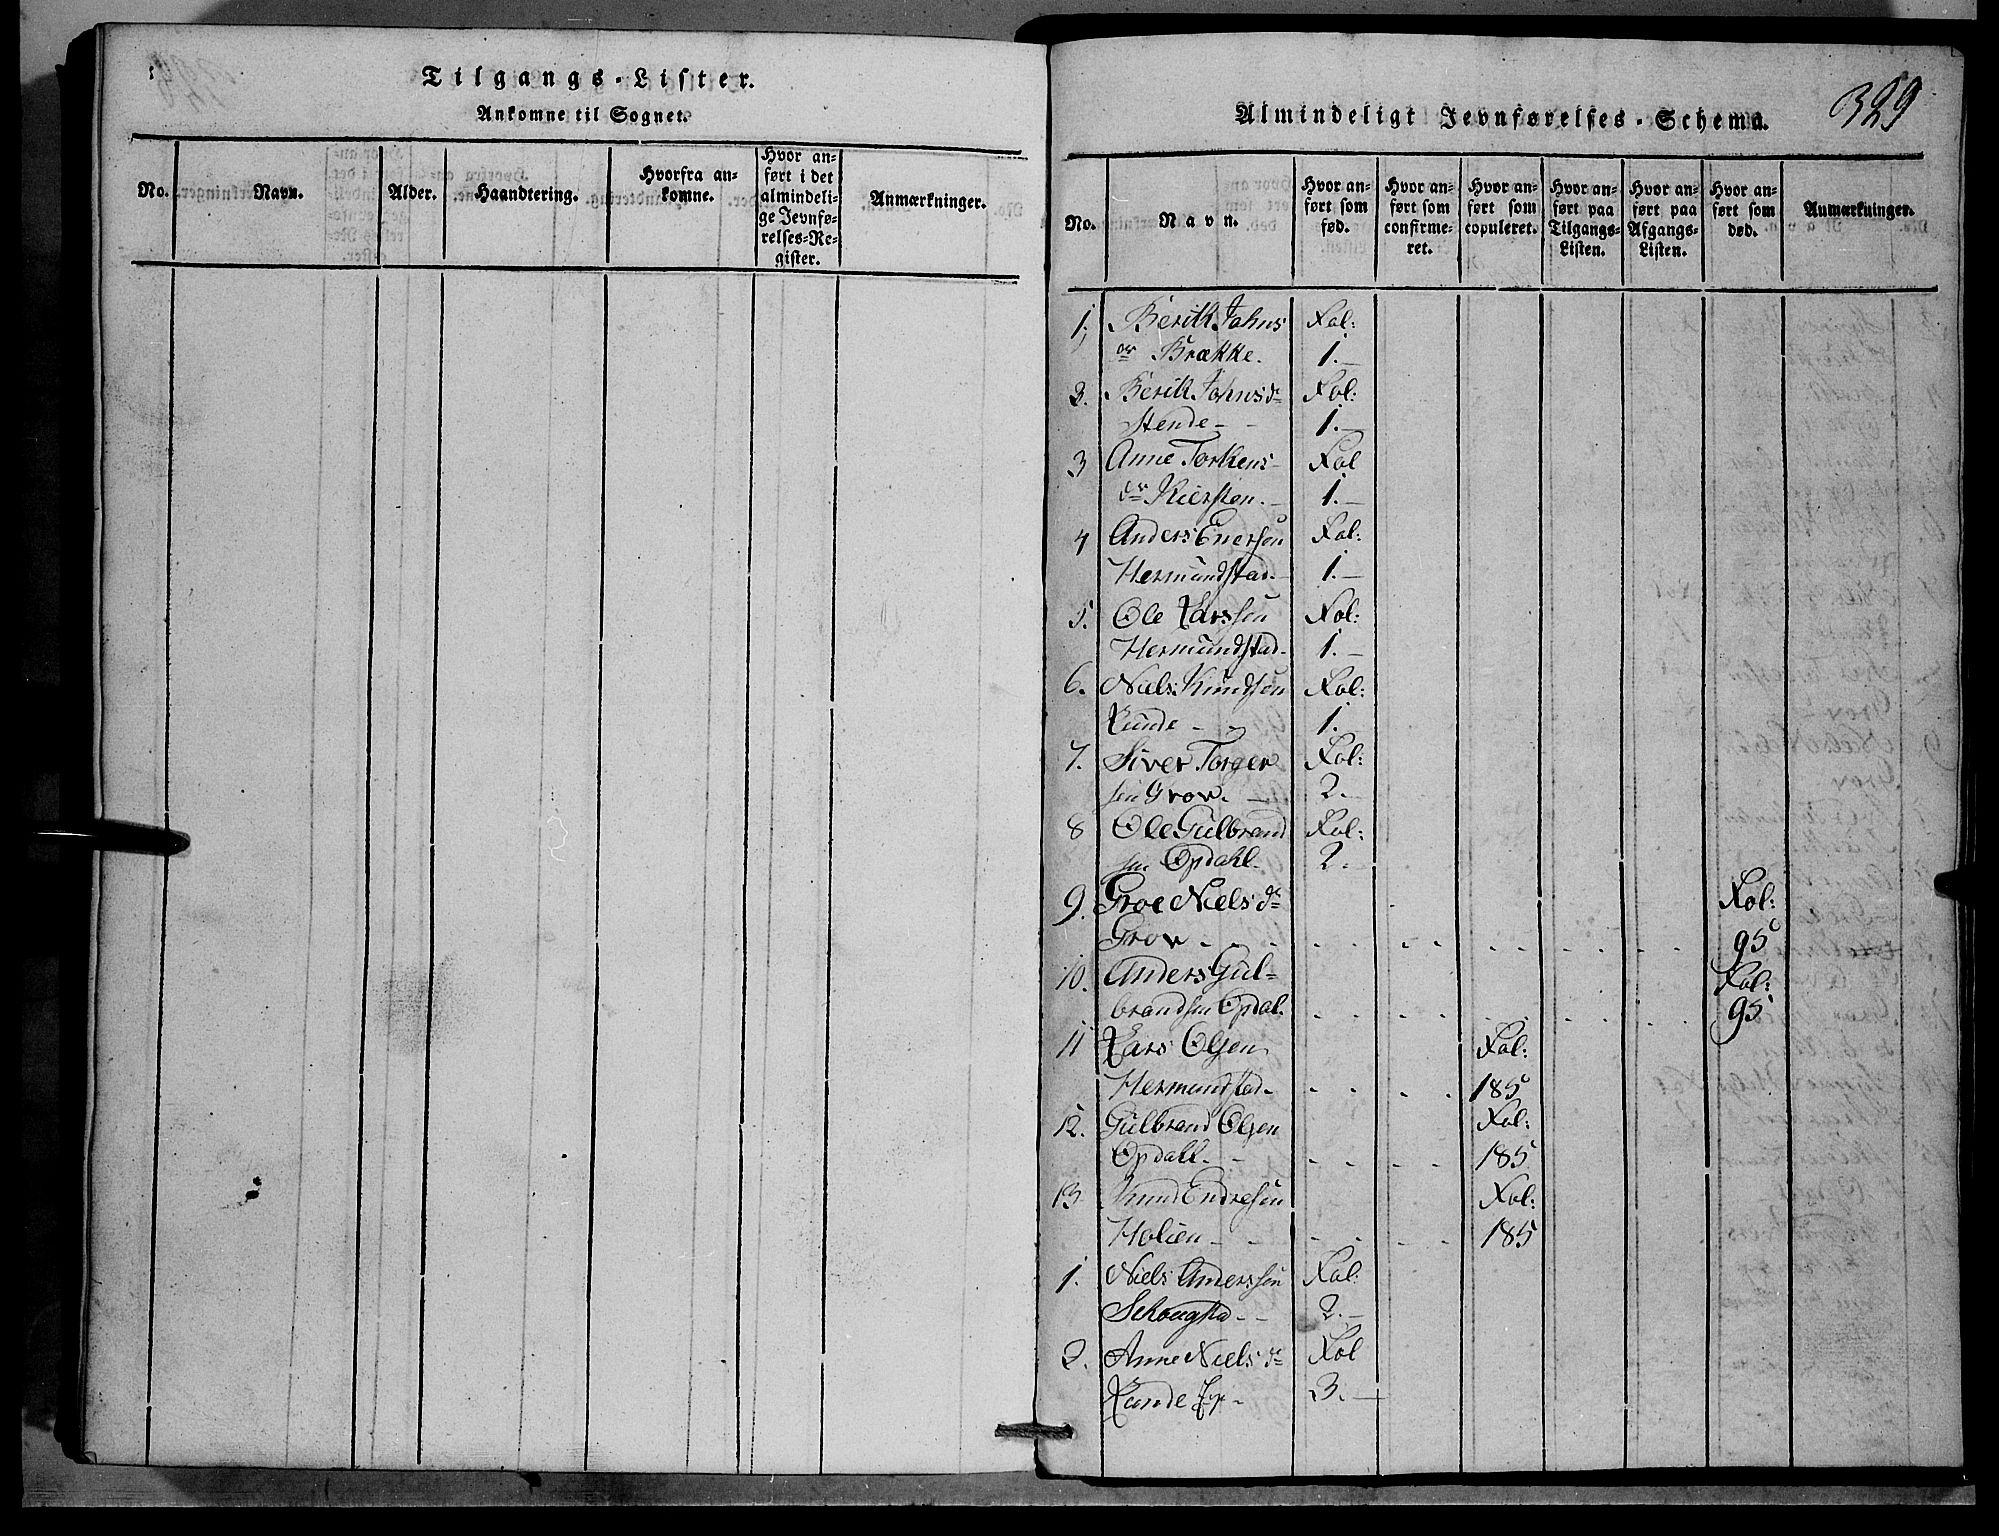 Tilgangs-Lister.
Ankomne til Sognet.
No.
Navn.
Alder.
Haandtering.
Hvorfra an-
komne.
Hvor an-
ført i det
almindeli-
ge Jevnfø-
relses-Re-
gister.
Anmærkninger.
329
Almindeligt Jevnførelses-Schema.
No.
Navn.
Hvor an-
ført som
fød.
Hvor an-
ført som
confirme-
ret.
Hvor an-
ført som
copuleret.
Hvor an-
ført paa
Tilgangs-
Listen.
Hvor an-
ført paa
Afgangs-
Listen.
Hvor an-
ført som
død.
Anmærkninger.
1. Berith Johns Fol:
dr Brække. 1.-
2. Berit Johnsdr Fol:
Stende - - 1.-
3 Anne Torkens- Fol
dr Kiersten. - 1.-
4 Anders Enersen Fol:
Hermundstad.- 1.-
5. Ole Larssen Fol:
Hermundstad. 1.-
6. Niels Knudsen Fol:
Lunde - - 1.-
7. Siver Torger Fol:
sen Grov. - 2.-
8 Ole Gulbrand Fol:
sen Opdahl. 2.-
9. Groe Nielsdr Fol:
Grov - - - - - - - - - - - 95
10. Anders Gul- Fol:
brandsen Opdal. - - - - - - - - - - 95
11 Lars Olsen Fol:
Hermundstad - - - - - 185
12. Gulbrand Olsen Fol:
Opdahl. - - - - - 185
13. Knud Endresen Fol:
Holien - - - - - - 185
1. Niels Anderssen Fol:
- - 2.-
2. Anne Nielsdr Fol
Lunde Ey- 3.-